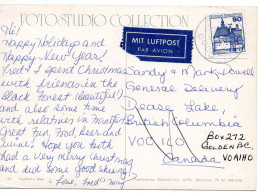 FOTO STUDIO COLLECTION
MIT LUFTPOST
PAR AVION
90
Hi!
Happy Holidays and
Happy New Year!
Fred & I spent Christmas
with friends in the
Black Forest (beautiful!)
and also some time
with relatives in
Great fun, food, beer and
wine. Hope you both
had a very merry Christmas
and did some good skiing!
Love, Fred
Sandy & Mark
General Delivery
Dease Lake,
British Columbia
VOC 1L0
Canada
BOX 272
GOLDEN BC,
VOA1HO